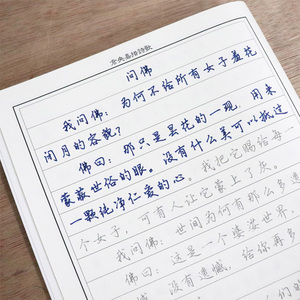 仓央嘉措诗歌
问佛
我问佛：为何不给所有女子羞花
闭月的容貌？
佛曰：那只是昙花的一现，用来
蒙蔽世俗的眼。没有什么美可以抵过
一颗纯净仁爱的心。我把它赐给每一
个女子，可有人让它蒙上了灰。
我问佛：世间为何有那么多遗
佛曰：这是一个婆娑世界，
没有遗憾，给你再多